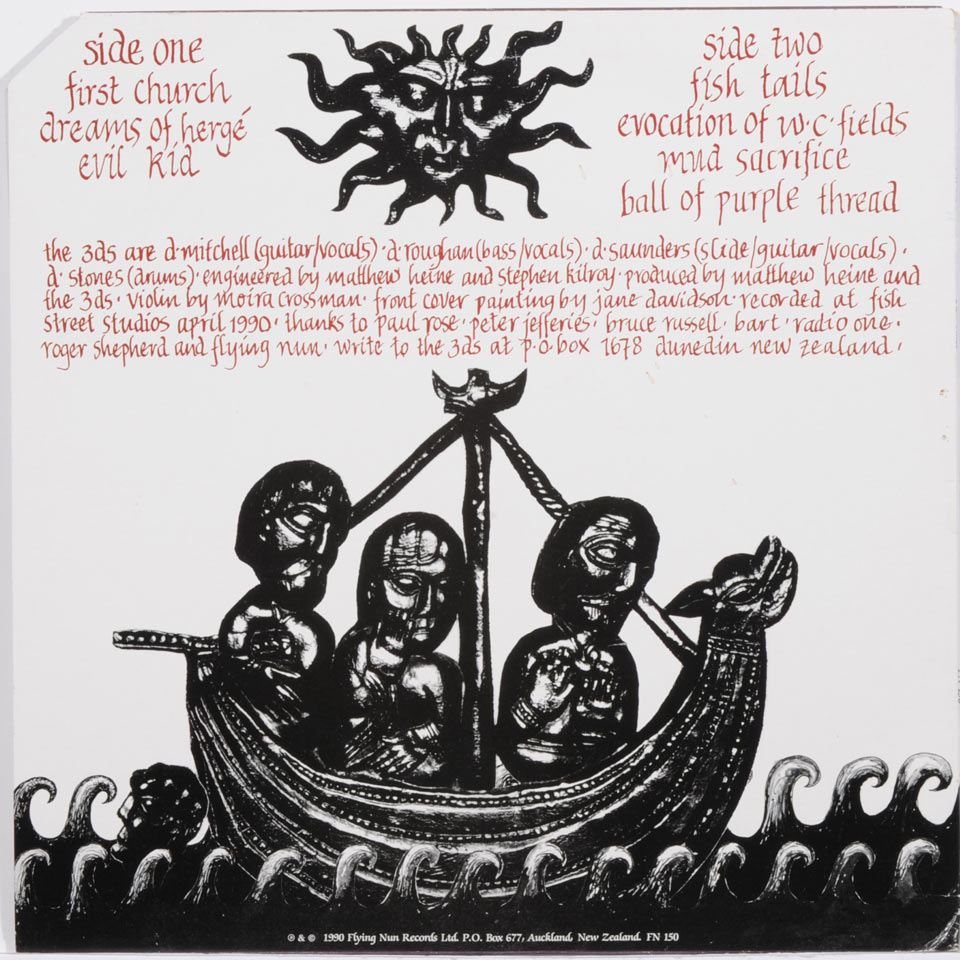 side one
first church
dreams of hergé
evil kid
side two
fish tails
evocation of w·c·fields
mud sacrifice
ball of purple thread
the 3ds are d·mitchell (guitar/vocals)·d·roughan (bass/vocals)·d·saunders (slide/guitar/vocals)·
d·stones (drums)·engineered by matthew heine and stephen kilroy·produced by matthew heine and
the 3ds·violin by moira crossman·front cover painting by jane davidson·recorded at fish
street studios april 1990·thanks to paul rose·peter jefferies·bruce russell·bart·radio one·
roger shepherd and flying nun·write to the 3ds at p·o·box 1678 dunedin new zealand·
℗ & © 1990 Flying Nun Records Ltd. P.O. Box 677, Auckland, New Zealand. FN 150